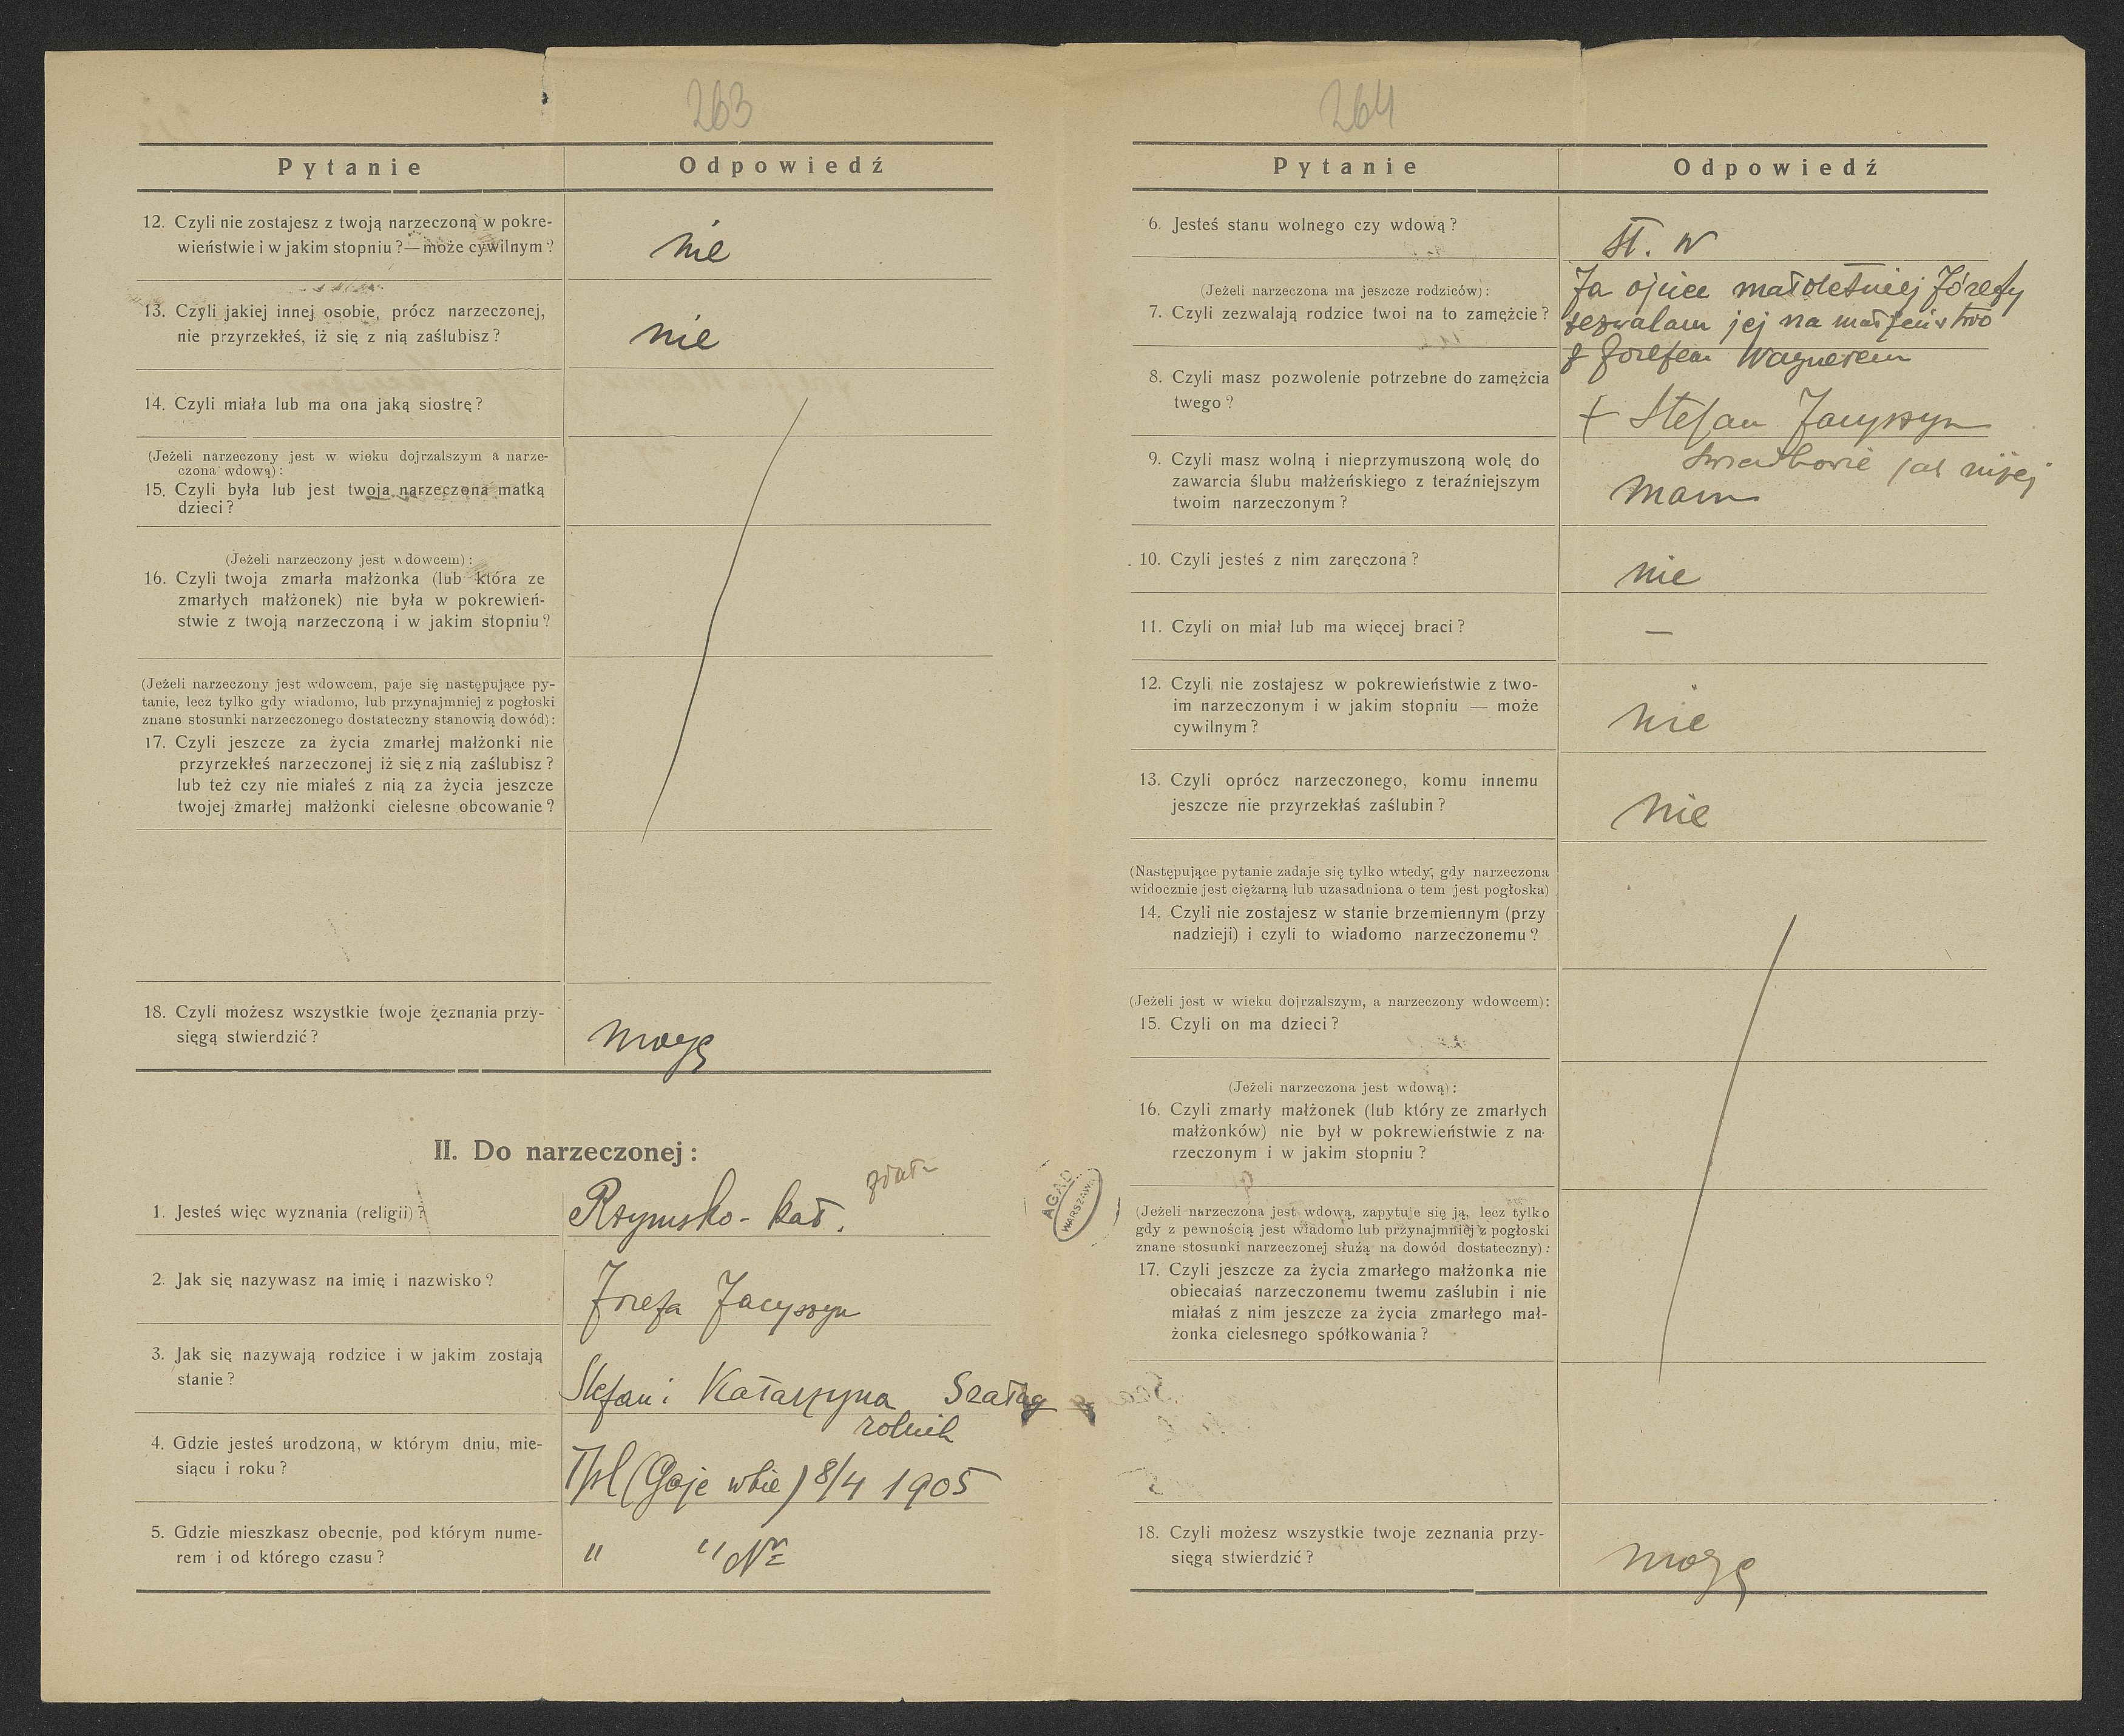 263
Pytanie
Odpowiedź
12. Czyli nie zostajesz z twoją narzeczoną w pokre-
wieństwie i w jakim stopniu? — może cywilnym?
nie
13. Czyli jakiej innej osobie, prócz narzeczonej,
nie przyrzekłeś, iż się z nią zaślubisz?
nie
14. Czyli miała lub ma ona jaką siostrę?
(Jeżeli narzeczony jest w wieku dojrzalszym a narze-
czona wdową):
15. Czyli była lub jest twoja narzeczona matką
dzieci?
(Jeżeli narzeczony jest wdowcem):
16. Czyli twoja zmarła małżonka (lub która ze
zmarłych małżonek) nie była w pokrewień-
stwie z twoją narzeczoną i w jakim stopniu?
(Jeżeli narzeczony jest wdowcem, paje się następujące py-
tanie, lecz tylko gdy wiadomo, lub przynajmniej z pogłoski
znane stosunki narzeczonego dostateczny stanowią dowód):
17. Czyli jeszcze za życia zmarłej małżonki nie
przyrzekłeś narzeczonej iż się z nią zaślubisz?
lub też czy nie miałeś z nią za życia jeszcze
twojej zmarłej małżonki cielesne obcowanie?
18. Czyli możesz wszystkie twoje zeznania przy-
sięgą stwierdzić?
mogę
II. Do narzeczonej:
1. Jesteś więc wyznania (religii)?
Rzymsko-kat.
2. Jak się nazywasz na imię i nazwisko?
Józefa Jacyszyn
3. Jak się nazywają rodzice i w jakim zostają
stanie?
Stefan i Katarzyna Szałag
rolnik
4. Gdzie jesteś urodzoną, w którym dniu, mie-
siącu i roku?
(Gaje wlkie) 8/4 1905
5. Gdzie mieszkasz obecnie, pod którym nume-
rem i od którego czasu?
" " Nr
AGAD
WARSZAWA
264
Pytanie
Odpowiedź
6. Jesteś stanu wolnego czy wdową?
st. w
(Jeżeli narzeczona ma jeszcze rodziców):
7. Czyli zezwalają rodzice twoi na to zamężcie?
Ja ojciec małoletniej Józefy
zezwalam jej na małżeństwo
z Józefem Wagnerem
8. Czyli masz pozwolenie potrzebne do zamężcia
twego?
+ Stefan Jacyszyn
świadkowie jak niżej
9. Czyli masz wolną i nieprzymuszoną wolę do
zawarcia ślubu małżeńskiego z teraźniejszym
twoim narzeczonym?
mam
10. Czyli jesteś z nim zaręczona?
nie
11. Czyli on miał lub ma więcej braci?
—
12. Czyli nie zostajesz w pokrewieństwie z two-
im narzeczonym i w jakim stopniu — może
cywilnym?
nie
13. Czyli oprócz narzeczonego, komu innemu
jeszcze nie przyrzekłaś zaślubin?
nie
(Następujące pytanie zadaje się tylko wtedy, gdy narzeczona
widocznie jest ciężarną lub uzasadniona o tem jest pogłoska)
14. Czyli nie zostajesz w stanie brzemiennym (przy
nadzieji) i czyli to wiadomo narzeczonemu?
(Jeżeli jest w wieku dojrzalszym, a narzeczony wdowcem):
15. Czyli on ma dzieci?
(Jeżeli narzeczona jest wdową):
16. Czyli zmarły małżonek (lub który ze zmarłych
małżonków) nie był w pokrewieństwie z na-
rzeczonym i w jakim stopniu?
(Jeżeli narzeczona jest wdową, zapytuje się ją, lecz tylko
gdy z pewnością jest wiadomo lub przynajmniej z pogłoski
znane stosunki narzeczonej służą na dowód dostateczny):
17. Czyli jeszcze za życia zmarłego małżonka nie
obiecałaś narzeczonemu twemu zaślubin i nie
miałaś z nim jeszcze za życia zmarłego mał-
żonka cielesnego spółkowania?
18. Czyli możesz wszystkie twoje zeznania przy-
sięgą stwierdzić?
mogę